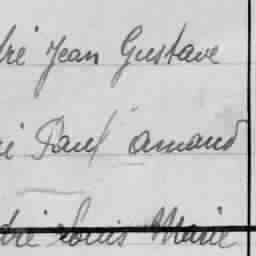 dré Jean Gustave
é Paul Amand
dré Louis Marie